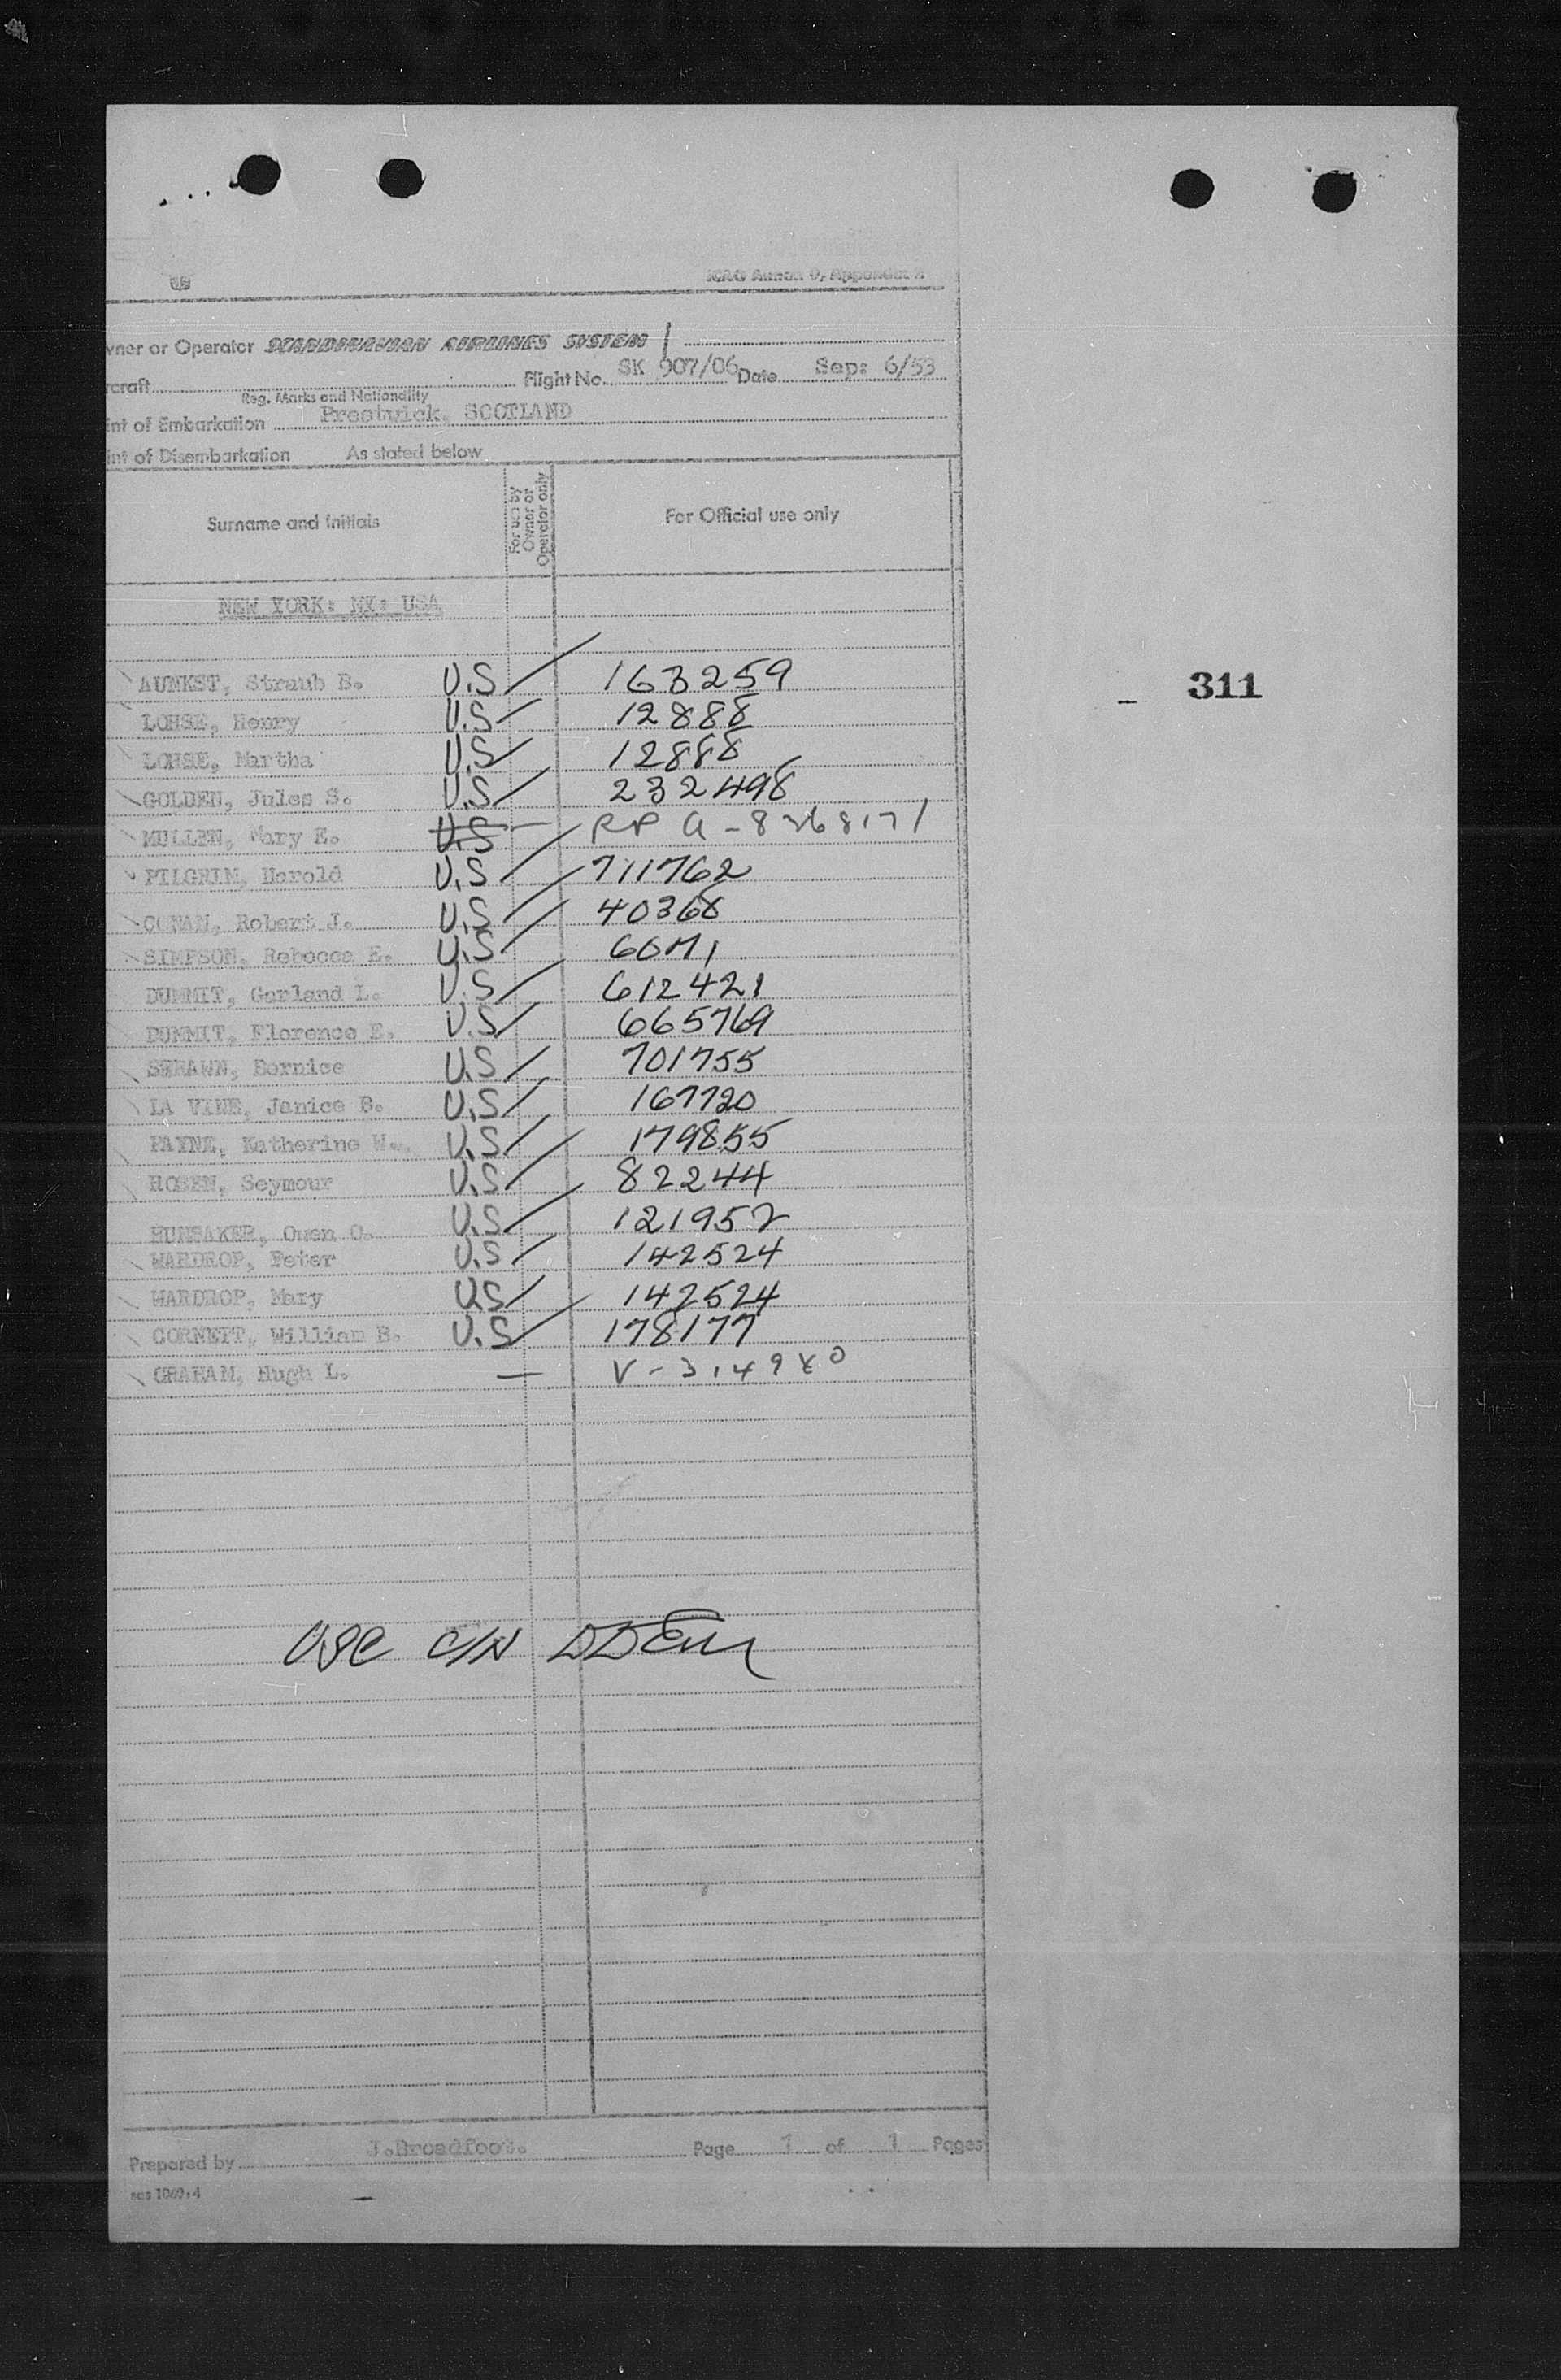 ICAO Annex 9, Appendix
wner or Operator SCANDINAVIAN AIRLINES SYSTEM
rcraft Flight No. SK 907/06 Date Sep: 6/53
Reg. Marks and Nationality
int of Embarkation Prestwick, SCOTLAND
int of Disembarkation As stated below
Surname and Initials For use by Owner or Operator only For Official use only
NEW YORK: NY: USA
AUNKST, Straub B. U.S 163259
311
LOHSE, Henry U.S 12888
LOHSE, Martha U.S 12888
GOLDEN, Jules S. U.S 232498
MULLEN, Mary E. U.S RP A-8268171
PILGRIM, Harold U.S 711762
CONAN, Robert J. U.S 40368
SIMPSON, Rebecca E. U.S 60711
DUMMIT, Garland L. U.S 612421
DUMMIT, Florence E. U.S 665769
SHRAWN, Bernice U.S 701755
LA VINE, Janice B. U.S 167720
PAYNE, Katherine W. U.S 179855
ROSEN, Seymour U.S 82244
HUNSAKER, Owen O. U.S 121952
WARDROP, Peter U.S 142524
WARDROP, Mary U.S 142524
CORNETT, William B. U.S 178177
GRAHAM, Hugh L. — V-314980
USC C/N
Prepared by J.Broadfoot. Page 1 of 1 Pages
sas 1060:4